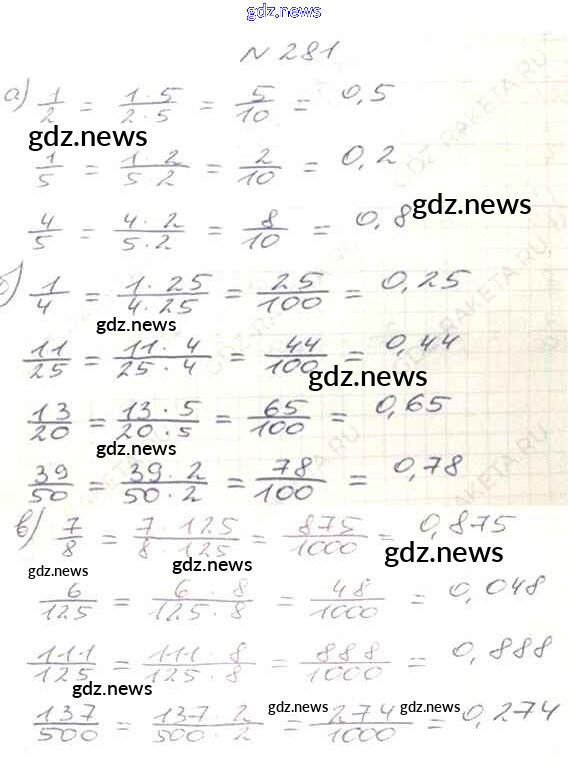 gdz.news
N 281
а) 1/2 = 1·5/2·5 = 5/10 = 0,5
gdz.news
1/5 = 1·2/5·2 = 2/10 = 0,2
4/5 = 4·2/5·2 = 8/10 = 0,8
gdz.news
б) 1/4 = 1·25/4·25 = 25/100 = 0,25
gdz.news
11/25 = 11·4/25·4 = 44/100 = 0,44
gdz.news
13/20 = 13·5/20·5 = 65/100 = 0,65
gdz.news
39/50 = 39·2/50·2 = 78/100 = 0,78
в) 7/8 = 7·125/8·125 = 875/1000 = 0,875
gdz.news
gdz.news
6/125 = 6·8/125·8 = 48/1000 = 0,048
111/125 = 111·8/125·8 = 888/1000 = 0,888
gdz.news
137/500 = 137·2/500·2 = 274/1000 = 0,274
gdz.news gdz.news